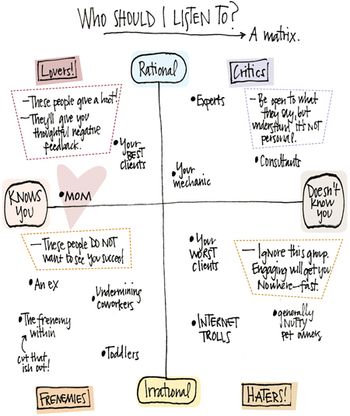 WHO SHOULD I LISTEN TO?
A matrix.
Lovers!
Rational
Critics
- These people give a hoot!
- They'll give you
thoughtful negative
feedback.
• Your
BEST
clients
• Experts
- Be open to what
they say, but
understand it's NOT
personal.
• Consultants
• Your
mechanic
KNOWS
YOU
• MOM
Doesn't
know
you
- These people DO NOT
want to see you succeed
• An ex
• Undermining
coworkers
• The frenemy
within
cut that
ish out!
• Toddlers
• Your
WORST
clients
- Ignore this group.
Engaging will get you
Nowhere - fast.
• INTERNET
TROLLS
• generally
NUTTY
pet owners
FRENEMIES
Irrational
HATERS!